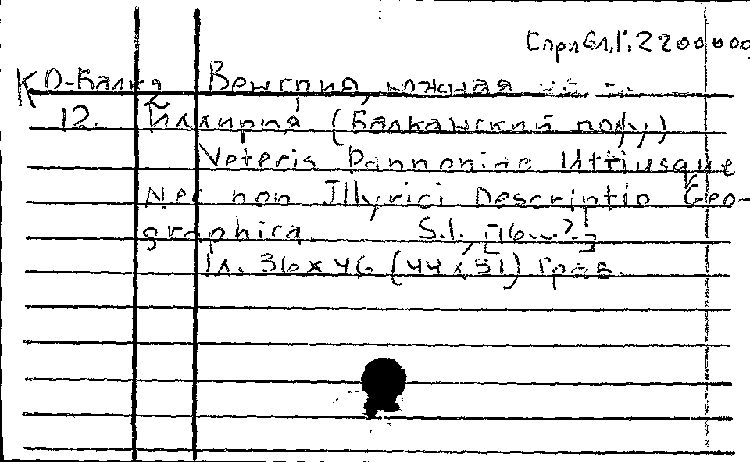 Спрл 6л, 1:2200000
К О-Балка Венгрия, южная
12. Иллирия (Балканский полу.)
Veteris Pannoniae Utriusque
Nec non Illyrici Descriptio Geo-
graphica. S.l., [16..?]
1л. 36x46 (44x51) Грав.